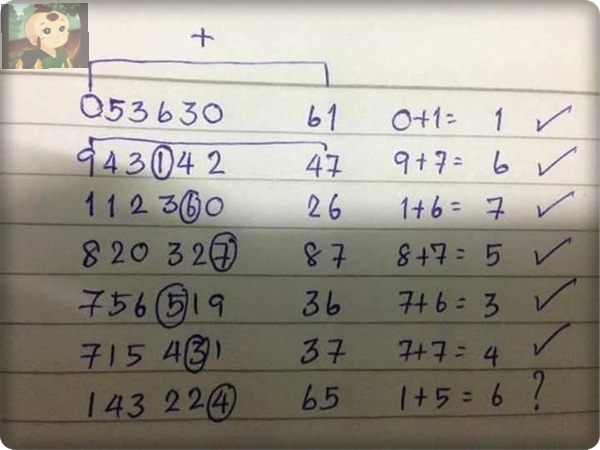 +
053630 61 0+1= 1 ✓
943142 47 9+7= 6 ✓
112360 26 1+6= 7 ✓
820 327 87 8+7= 5 ✓
756519 36 7+6= 3 ✓
715 431 37 7+7= 4 ✓
143 224 65 1+5= 6 ?